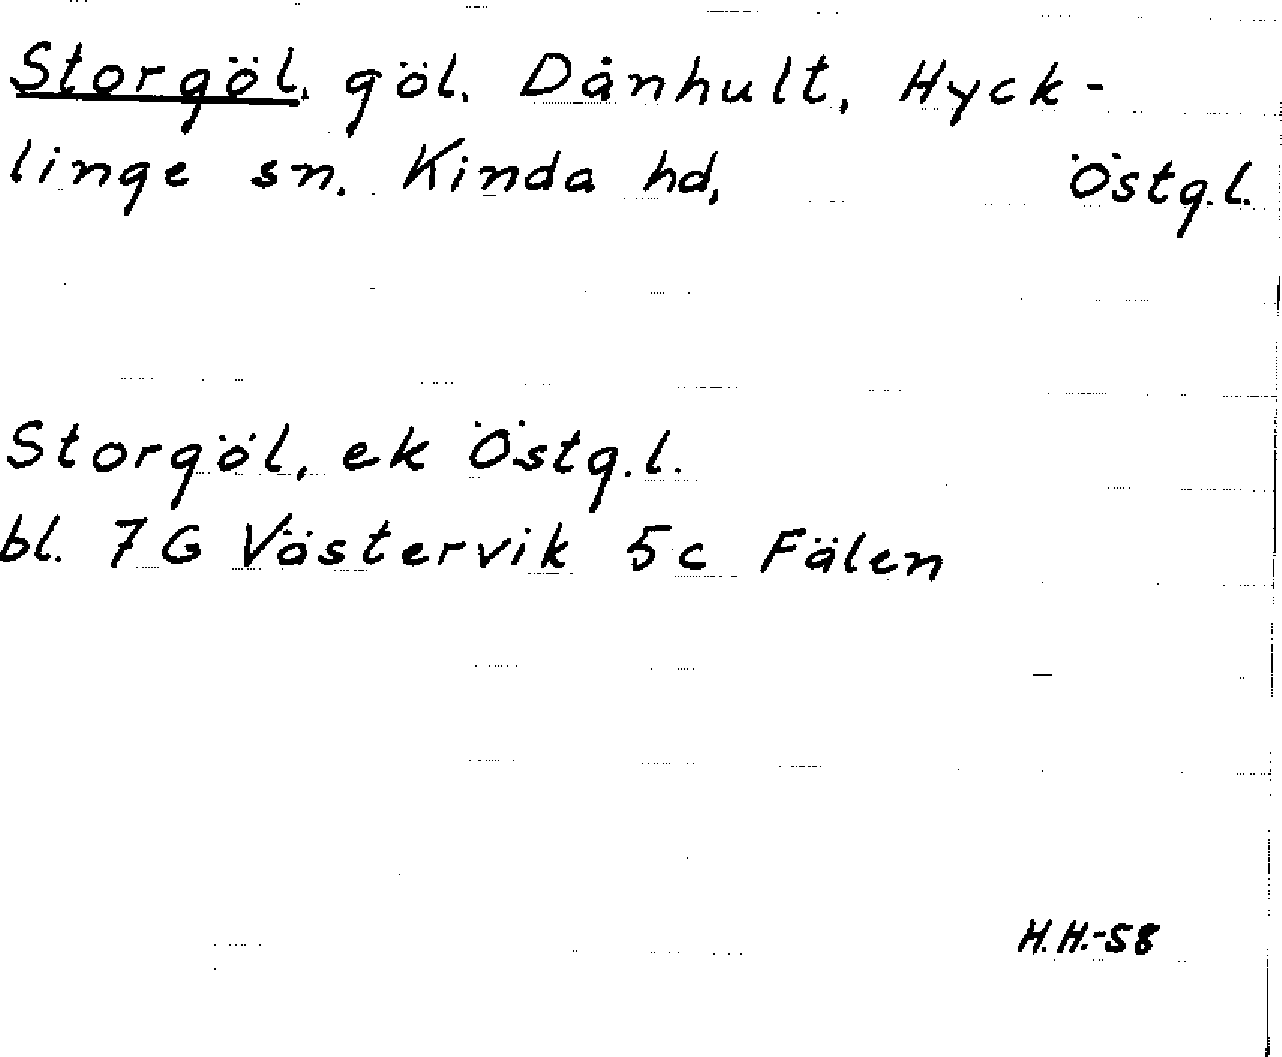 Storgöl, göl. Dånhult, Hyck-
linge sn. Kinda hd, Östg.l.
Storgöl, ek Östg.l.
bl. 7G Västervik 5c Fälen
H.H.-58